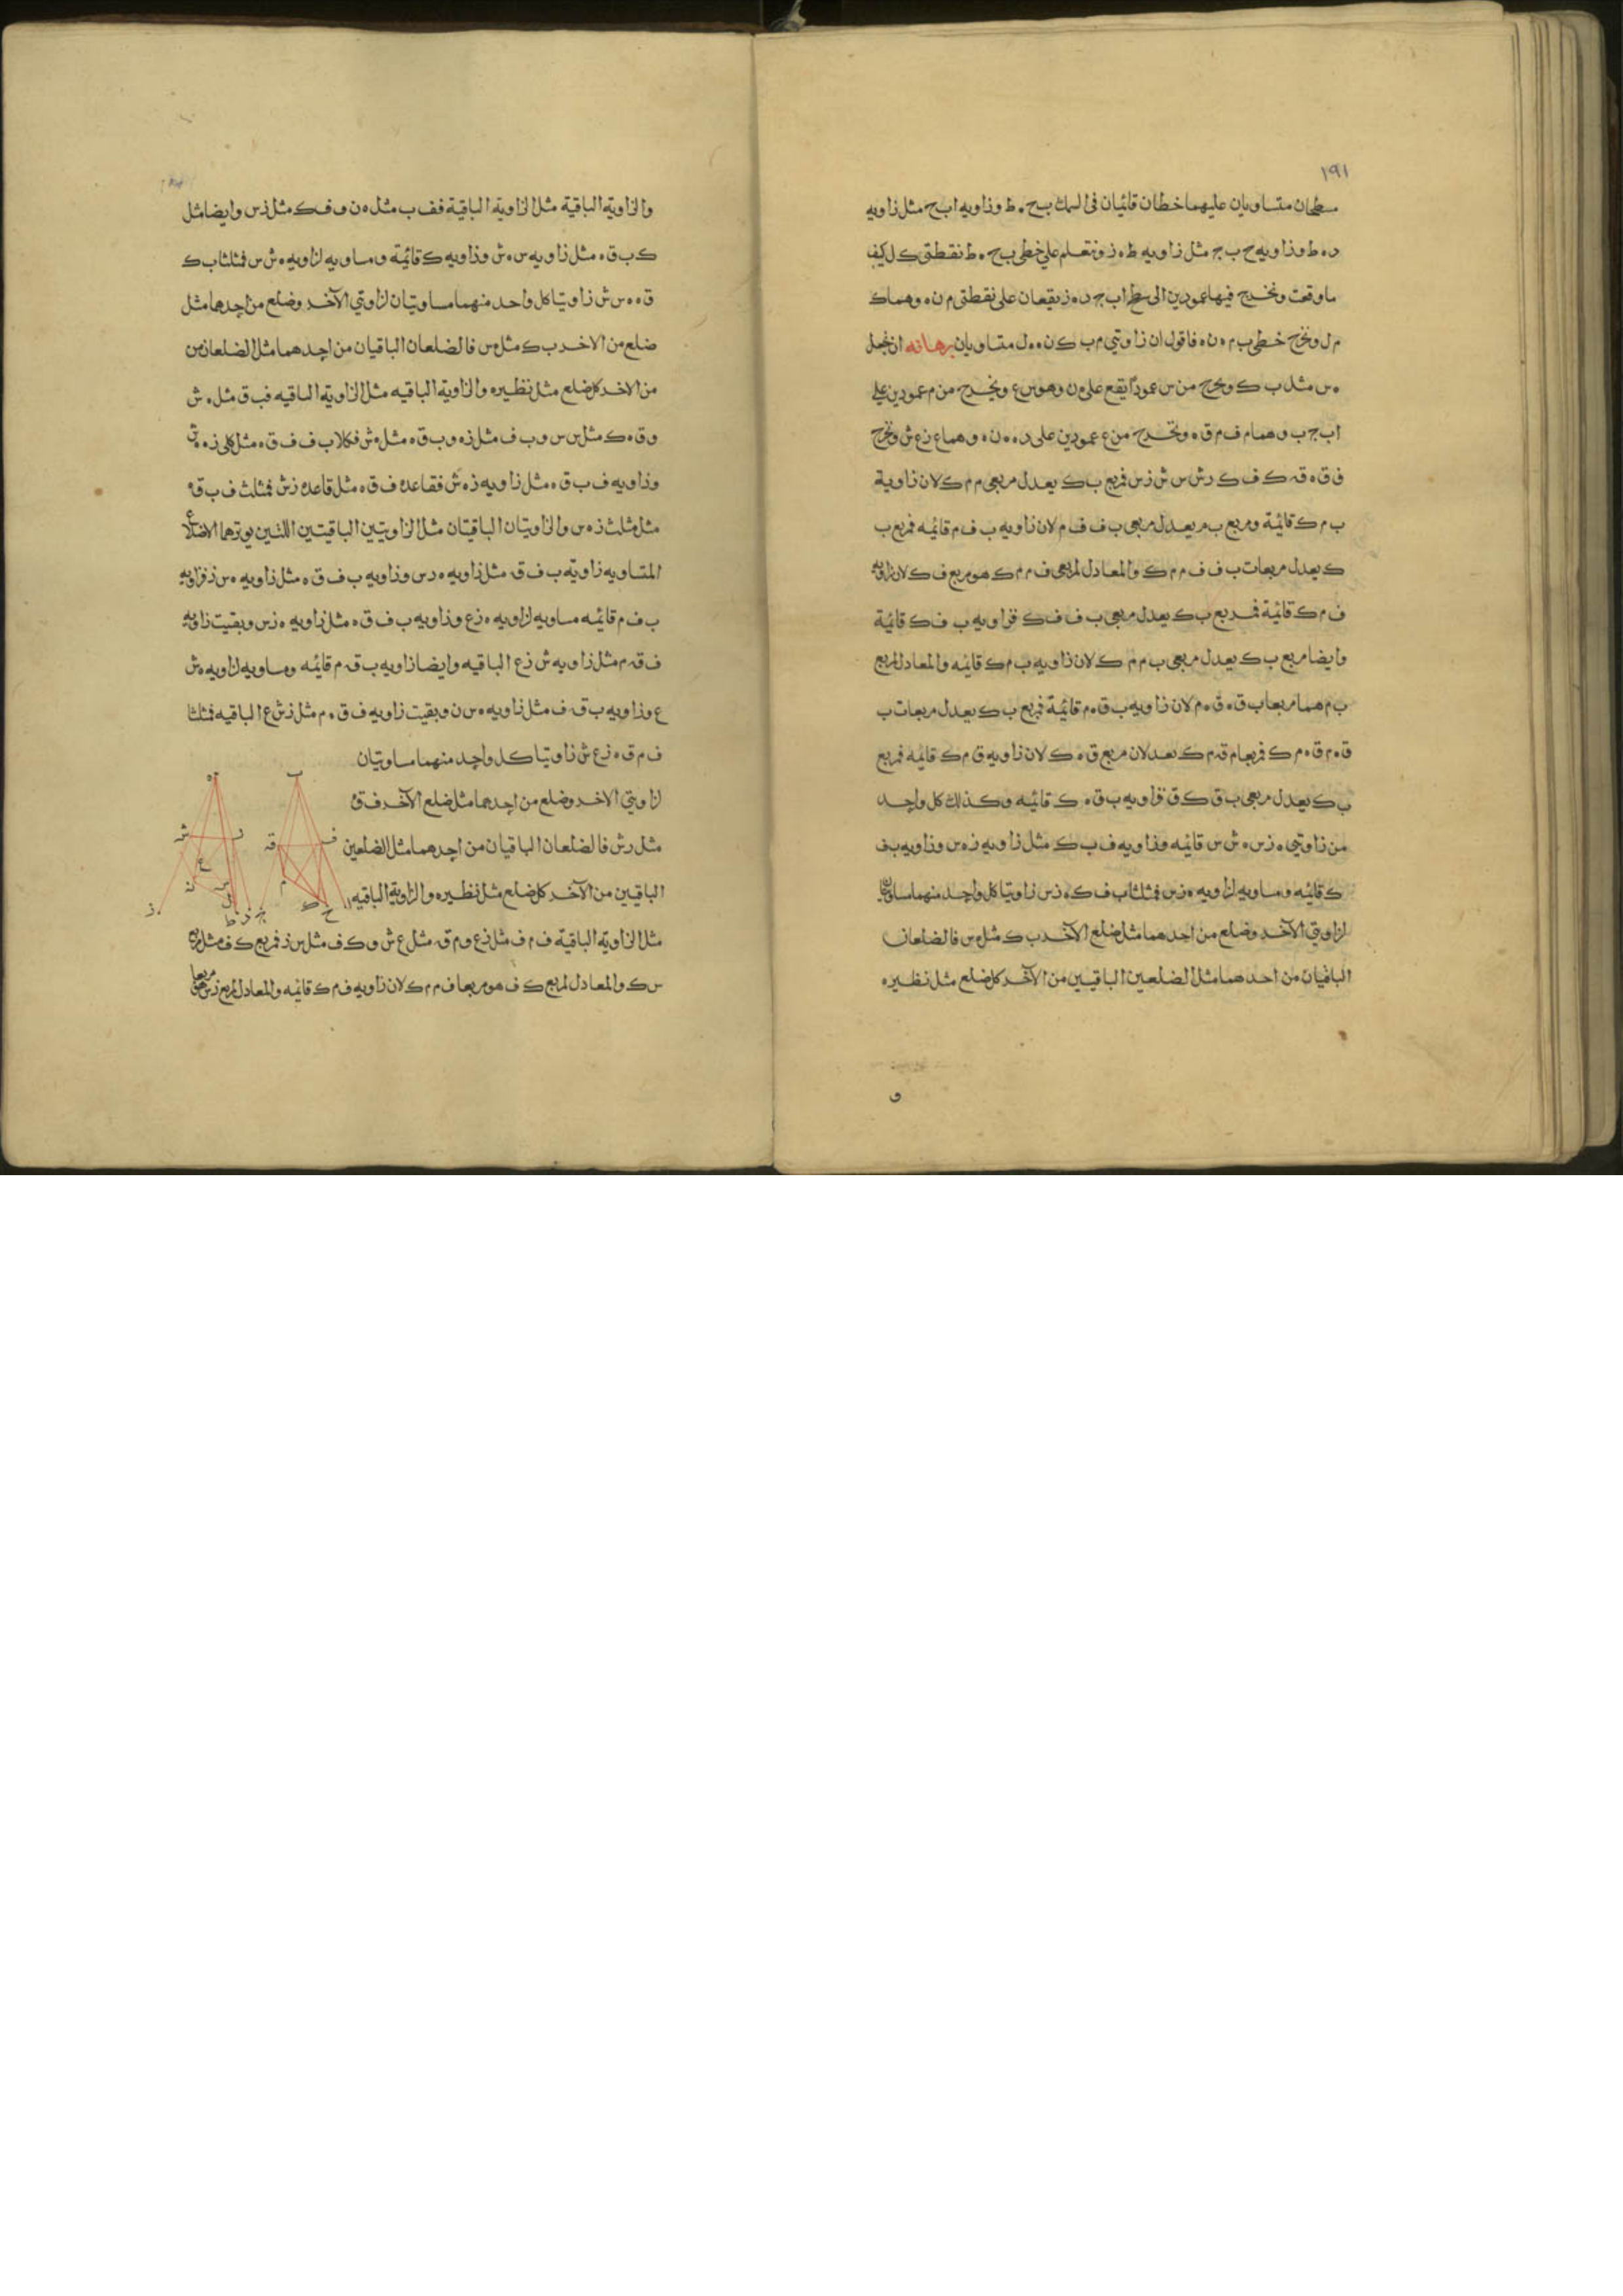 ١٩١
سطحان متساويان عليهما خطان قائمان فى السمك ب ح ه ط وزاويه ا ب ح مثل زاويه
د ه ط وزاويه ح ب ج مثل زاويه ط ه ز ونتعلم على خطى ب ح ه ط نقطتى ك ل كيف
ما وقعت ونخرج فيها عمودين الى سطح ا ب ج د ه ز يقعان على نقطتى م ن ه وهما ك
م ل ونخرج خطى ب م ه ن ه فاقول ان زاويتي م ب ك ن ه ل متساويان برهانه ان نجعل
ه س مثل ب ك ونخرج من س عمودا يقع على ه ن وهو س ع ونخرج من م عمودين على
ا ب ج ب وهما م ف م ق ه ونخرج من ع عمودين على د ه ه ن ه وهما ع ز ع ش ونخرج
ف ق ه ق ك ف ك ر ش س ش ز س فمربع ب ك يعدل مربعى م م ك لان زاوية
ب م ك قائمة ومربع ب م يعدل مربعى ب ف ف م لان زاويه ب ف م قائمه فمربع ب
ك يعدل مربعات ب ف ف م م ك والمعادل لمربعى ف م م ك هو مربع ف ك لان زاويه
ف م ك قائمة فمربع ب ك يعدل مربعى ب ف ف ك فزاويه ب ف ك قائمة
وايضا مربع ب ك يعدل مربعى ب م م ك لان زاويه ب م ك قائمه والمعادل لمربع
ب م هما مربعا ب ق ه ق ه م لان زاويه ب ق ه م قائمة فمربع ب ك يعدل مربعات ب
ق ه م ق ه م ك فمربعا م ق م ك يعدلان مربع ق ه ك لان زاويه ق م ك قائمه فمربع
ب ك يعدل مربعى ب ق ك ق فزاويه ب ق ه ك قائمه وكذلك كل واحد
من زاويتي ه ز س ه ش س قائمه وزاويه ف ب ك مثل زاويه ز ه س وزاويه ب ف
ك قائمه ومساويه لزاويه ه ز س فمثلثا ب ف ك ه ز س زاويتا كل واحد منهما مساويتان
لزاويتي الآخر وضلع من احدهما مثل ضلع الآخر ب ك مثل ه س فالضلعان
الباقيان من احدهما مثل الضلعين الباقيين من الآخر كل ضلع مثل نظيره
و
والزاوية الباقية مثل الزاوية الباقية فف ب مثل ه ن و ف ك مثل ز س وايضا مثل
ك ب ق ه مثل زاويه س ه ش وزاويه ك قائمة ومساويه لزاويه ه ش س فمثلثا ب ك
ق ه ه س ش زاويتا كل واحد منهما مساويتان لزاويتي الآخر وضلع من احدهما مثل
ضلع من الاخر ب ك مثل ه س فالضلعان الباقيان من احدهما مثل الضلعان من
من الاخر كل ضلع مثل نظيره والزاوية الباقيه مثل الزاوية الباقيه فب ق مثل ه ش
و ق ه ك مثل س س و ب ف مثل ز ه و ب ق ه مثل ه ش فكلا ب ف ف ق ه مثل كلى ز ه ه ش
وزاويه ف ب ق ه مثل زاويه ز ه ش فقاعدة ف ق ه مثل قاعدة ز ش فمثلث ف ب ق ه
مثل مثلث ز ه س والزاويتان الباقيتان مثل الزاويتين الباقيتين اللتين يوترهما الاضلاع
المتساويه زاوية ب ف ق مثل زاويه ه ر س وزاويه ب ف ق ه مثل زاويه ه س ز فزاويه
ب ف م قائمه مساويه لزاويه ه ز ع وزاويه ب ف ق ه مثل زاويه ه ز س وبقيت زاويه
ف ق م مثل زاويه ش ز ع الباقيه وايضا زاويه ب ق م قائمه ومساويه لزاويه ه ش
ع وزاويه ب ق ف مثل زاويه ه س ن وبقيت زاويه ف ق ه م مثل ز ش ع الباقيه فمثلثا
ف م ق ه ز ع ش زاويتا كل واحد منهما مساويتان
لزاويتي الاخر وضلع من احدهما مثل ضلع الآخر ف ق ه
مثل ر ش فالضلعان الباقيان من احدهما مثل الضلعين
الباقيين من الآخر كل ضلع مثل نظيره والزاوية الباقيه
مثل الزاوية الباقية ف م ف مثل ز ع و م ق مثل ع ش و ك ف مثل س ز فمربع ك ف مثل مربع
س ك والمعادل لمربع ك ف هو مربعا ف م م ك لان زاويه ف م ك قائمه والمعادل لمربع ز س هو مربعا